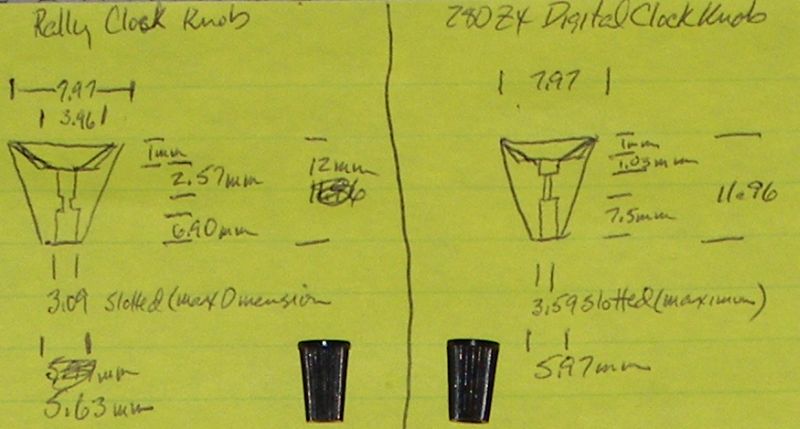 Rally Clock Knob
7.97
3.96
1mm
2.57mm
6.90mm
12mm
3.09 slotted (max Dimension
mm
5.63mm
280ZX Digital Clock Knob
7.97
1mm
1.03mm
7.5mm
11.96
3.59 slotted (maximum)
5.97mm